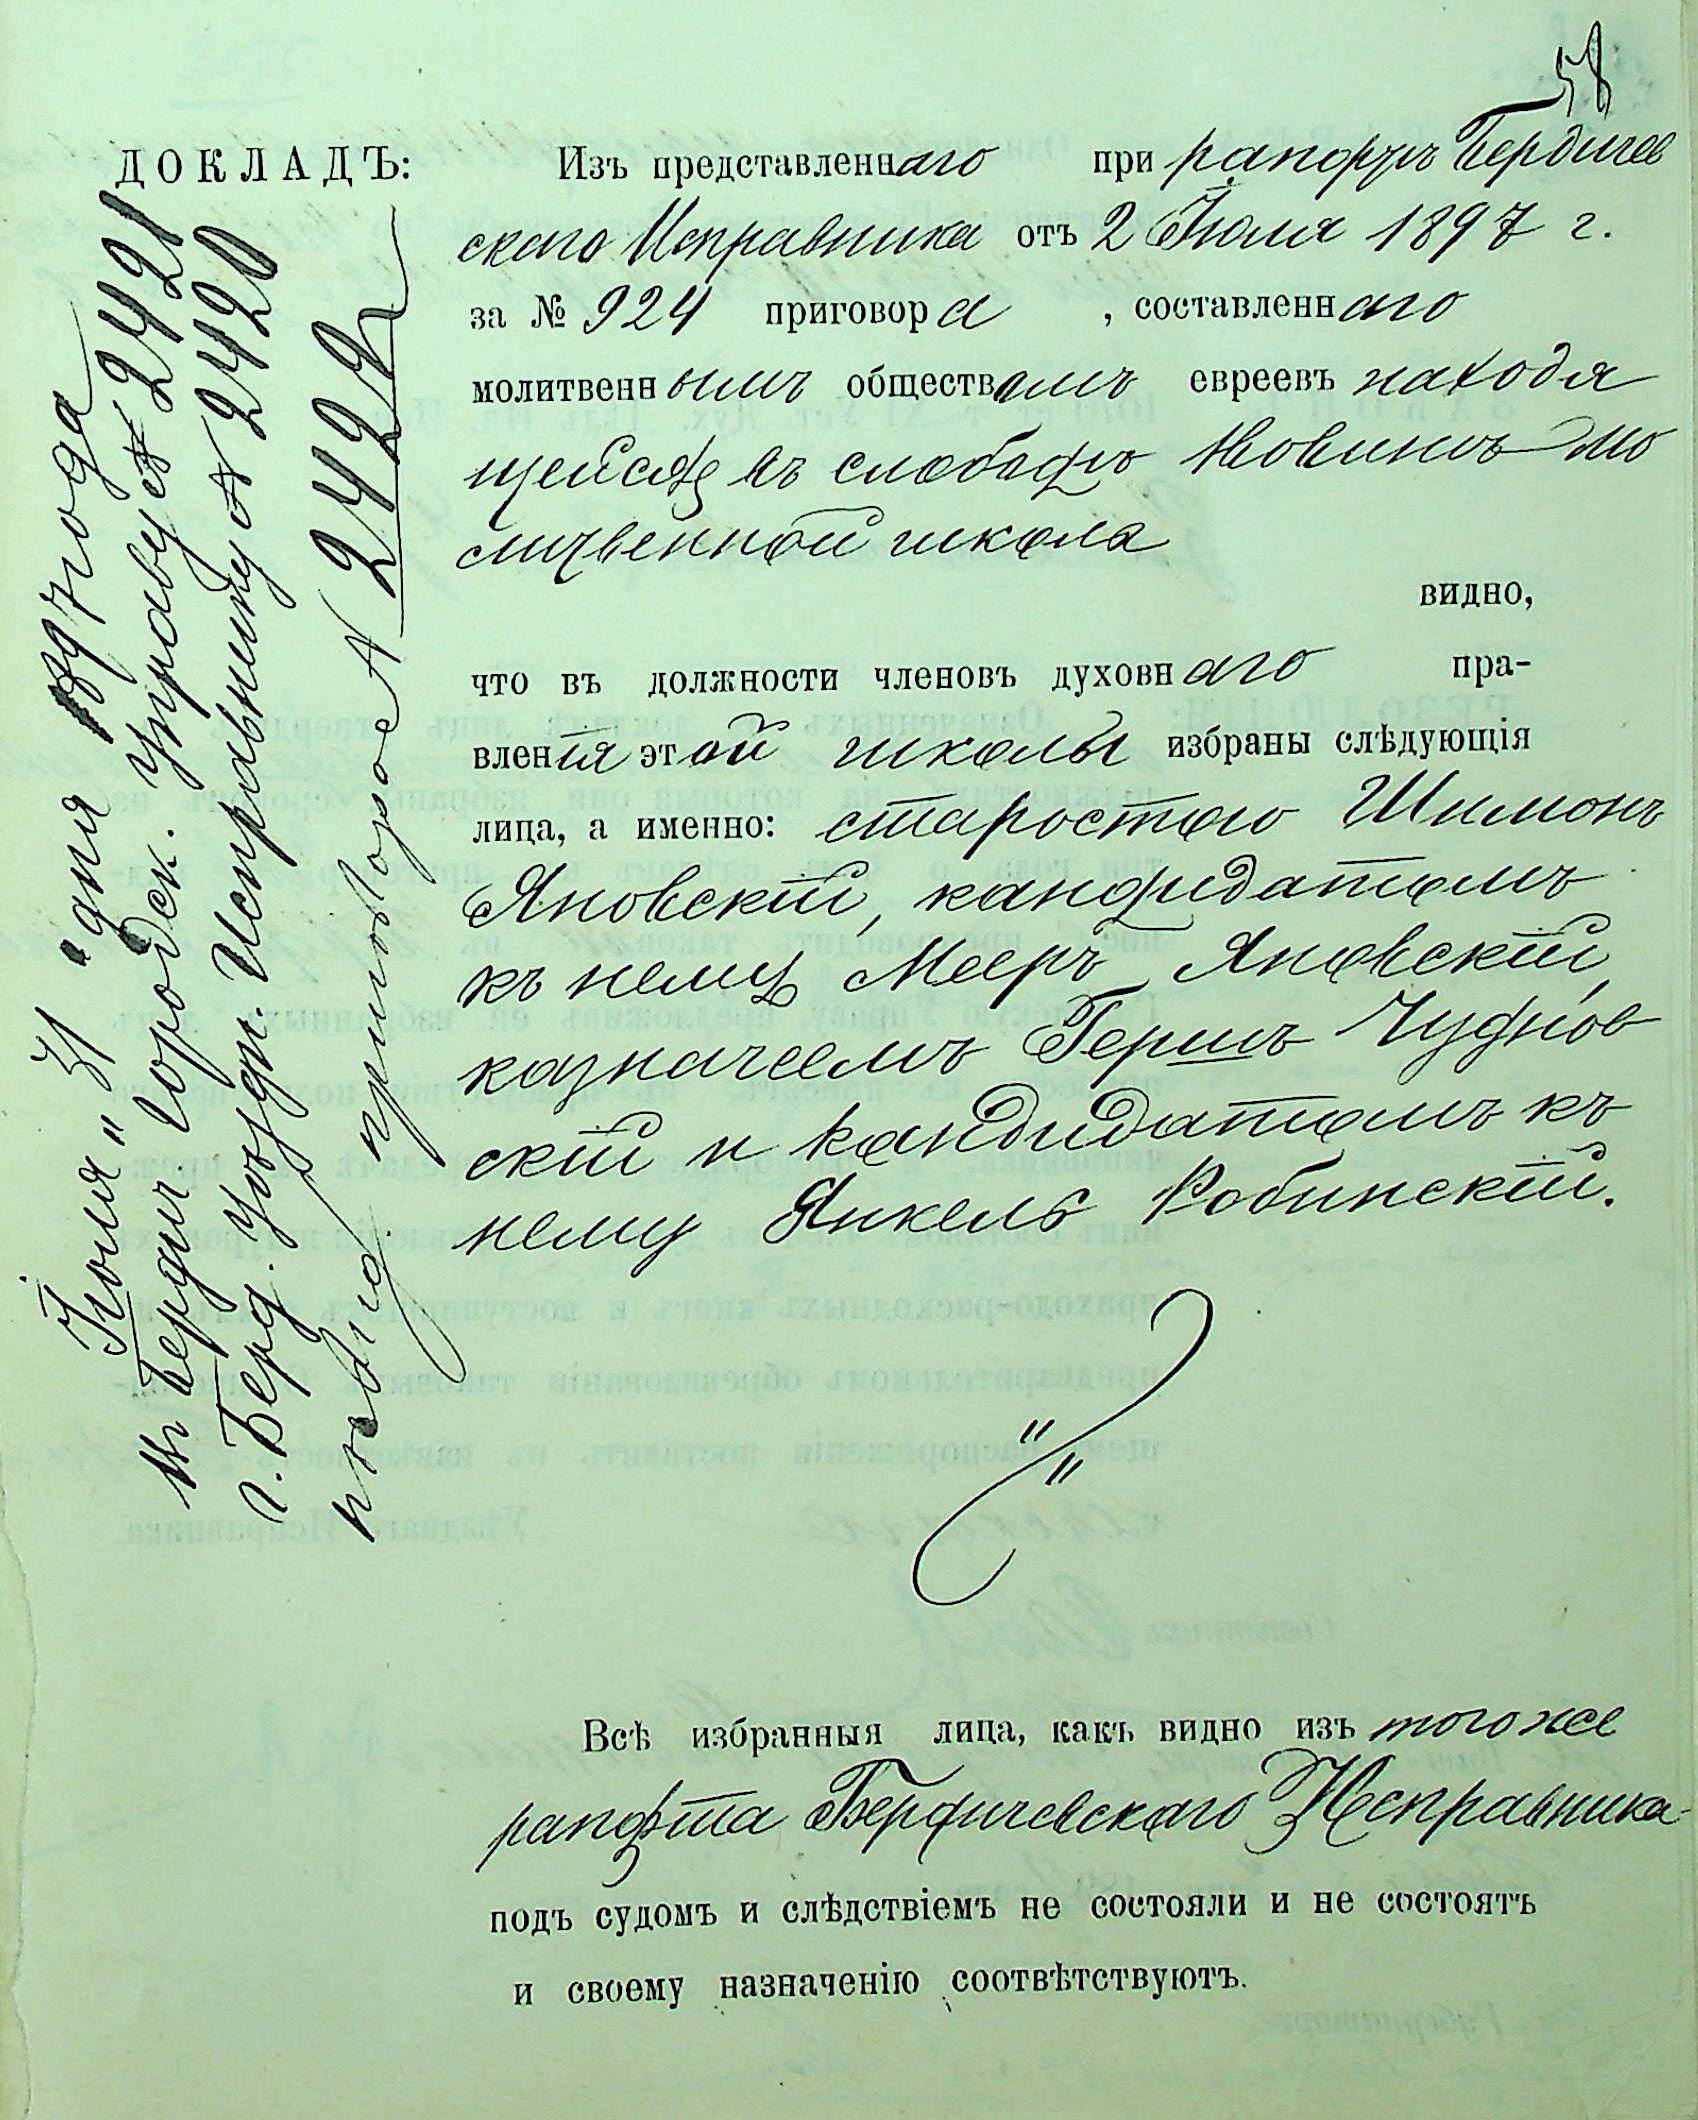 58
ДОКЛАДЪ:
Изъ представленнаго при рапортѣ Бердичев
скаго Исправника отъ 2 Іюля 1897 г.
за № 924 приговора , составленнаго
молитвеннымъ обществомъ евреевъ находя
щейся въ слободѣ Новикѣ мо
литвенной школа
видно,
что въ должности членовъ духовнаго пра-
вленія этой школы избраны слѣдующія
лица, а именно: старостою Шимонъ
Яновскій, кандидатомъ
къ нему Мееръ Яновскій,
казначеемъ Гершъ Чуднов
скій и кандидатомъ къ
нему Янкель Робинскій.
Всѣ избранныя лица, какъ видно изъ того же
рапорта Бердичевскаго Исправника
подъ судомъ и слѣдствіемъ не состояли и не состоятъ
и своему назначенію соотвѣтствуютъ.
Іюля „ 31 " дня 1897 года
Бердич. Городск. Управу № 2421
г. Берд. Уѣздн. Исправнику № 2420
приговоре № 2422